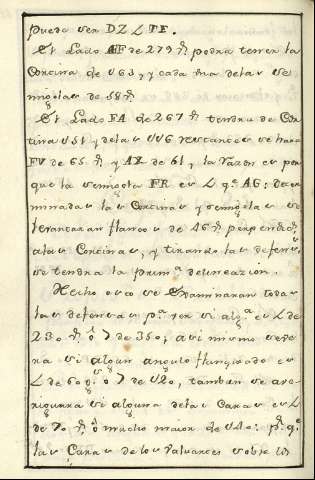 puede ser DZ ∠ TE.
El Lado EF de 279 podra tener la
Cortina de 63, y cada una delas se
migolas de 58
El Lado FA de 267 tendra de Cor
tina 151 y delas 116 restantes se hara
FV de 65 y AX de 61 y la razon es por
que la semigola FR es ∠ q.e AG: deter
minadas las Cortinas y semigolas se
levantaran flancos de 46 perpendic.s
alas Cortinas, y tirando las defensas,
se tendra la prim.a delineazion.
Hecho esto se Examinaran todas
las defensas p.a ver si alg.a es ∠ de
230 ó 7 de 350; asi mismo severa
ra si algun angulo flanqueado es
∠ de 60 g.s ó 7 de 120, tambien se ave
riguara si alguna delas Caras es ∠
de 70 ó mucho maior de 140: p.r q.e
las Caras de los Valuartes sobre los